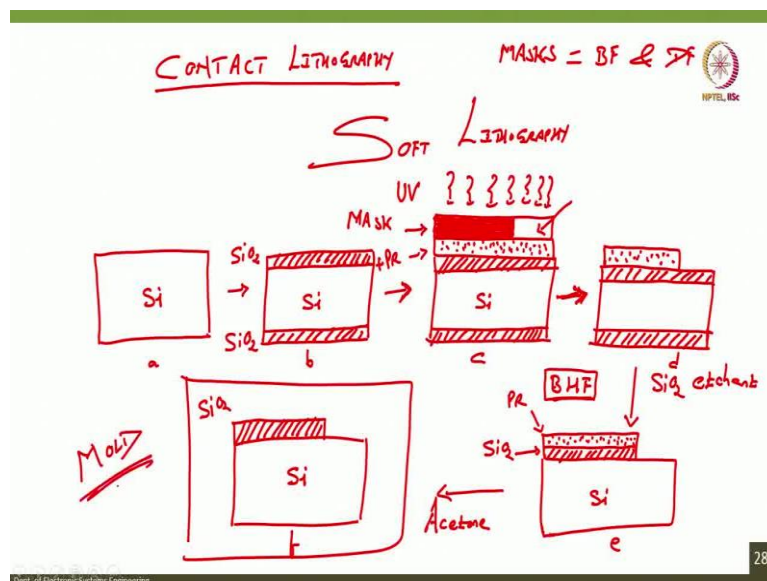 CONTACT LITHOGRAPHY
MASKS = BF & DF
NPTEL, IISc
SOFT LITHOGRAPHY
UV
MASK
+PR
SiO2
Si
SiO2
Si
Si
a
b
c
d
BHF
SiO2 etchant
PR
SiO2
Si
e
Acetone
SiO2
Si
f
MOLD
28
Dept. of Electronic Systems Engineering